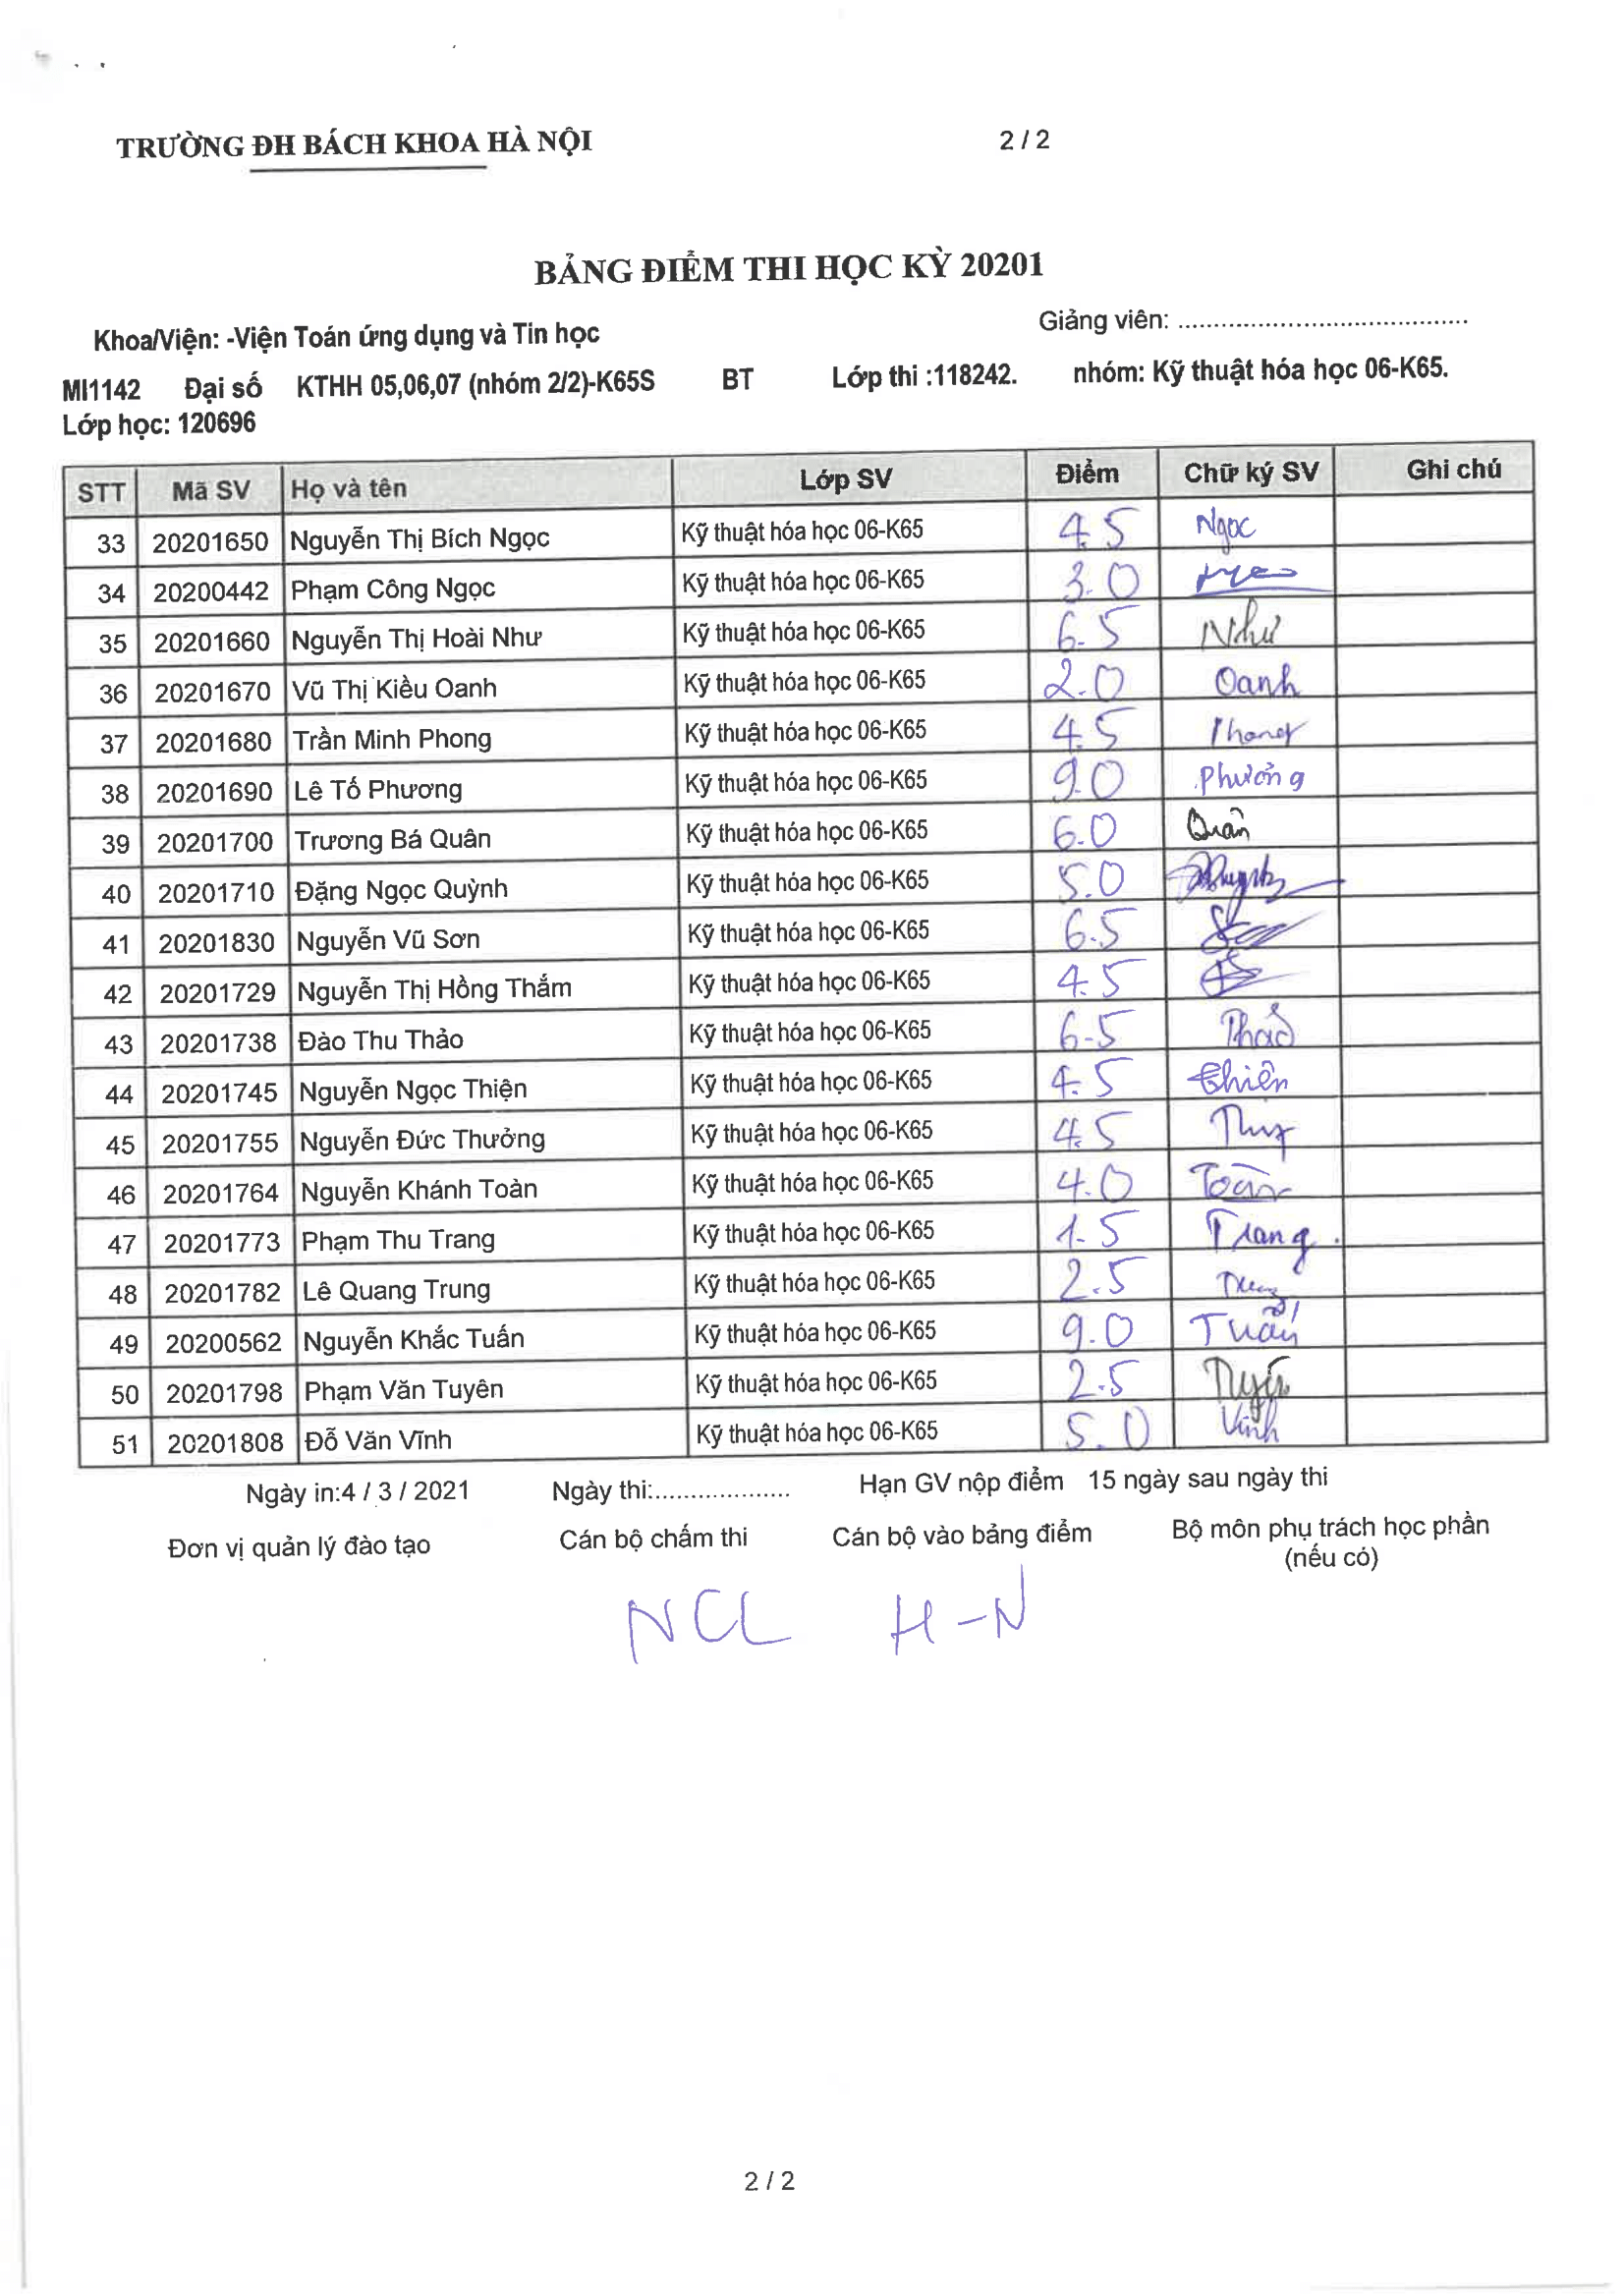 TRƯỜNG ĐH BÁCH KHOA HÀ NỘI 2 / 2
BẢNG ĐIỂM THI HỌC KỲ 20201
Khoa/Viện: -Viện Toán ứng dụng và Tin học Giảng viên: ..........................................
MI1142 Đại số KTHH 05,06,07 (nhóm 2/2)-K65S BT Lớp thi :118242. nhóm: Kỹ thuật hóa học 06-K65.
Lớp học: 120696
STT Mã SV Họ và tên Lớp SV Điểm Chữ ký SV Ghi chú
33 20201650 Nguyễn Thị Bích Ngọc Kỹ thuật hóa học 06-K65 4.5 Ngọc
34 20200442 Phạm Công Ngọc Kỹ thuật hóa học 06-K65 3.0
35 20201660 Nguyễn Thị Hoài Như Kỹ thuật hóa học 06-K65 6.5 Như
36 20201670 Vũ Thị Kiều Oanh Kỹ thuật hóa học 06-K65 2.0 Oanh
37 20201680 Trần Minh Phong Kỹ thuật hóa học 06-K65 4.5 Phong
38 20201690 Lê Tố Phương Kỹ thuật hóa học 06-K65 9.0 Phương
39 20201700 Trương Bá Quân Kỹ thuật hóa học 06-K65 6.0 Quân
40 20201710 Đặng Ngọc Quỳnh Kỹ thuật hóa học 06-K65 5.0
41 20201830 Nguyễn Vũ Sơn Kỹ thuật hóa học 06-K65 6.5
42 20201729 Nguyễn Thị Hồng Thắm Kỹ thuật hóa học 06-K65 4.5
43 20201738 Đào Thu Thảo Kỹ thuật hóa học 06-K65 6.5 Thảo
44 20201745 Nguyễn Ngọc Thiện Kỹ thuật hóa học 06-K65 4.5 Thiện
45 20201755 Nguyễn Đức Thưởng Kỹ thuật hóa học 06-K65 4.5
46 20201764 Nguyễn Khánh Toàn Kỹ thuật hóa học 06-K65 4.0 Toàn
47 20201773 Phạm Thu Trang Kỹ thuật hóa học 06-K65 1.5 Trang
48 20201782 Lê Quang Trung Kỹ thuật hóa học 06-K65 2.5
49 20200562 Nguyễn Khắc Tuấn Kỹ thuật hóa học 06-K65 9.0 Tuấn
50 20201798 Phạm Văn Tuyên Kỹ thuật hóa học 06-K65 2.5
51 20201808 Đỗ Văn Vĩnh Kỹ thuật hóa học 06-K65 5.0 Vĩnh
Ngày in:4 / 3 / 2021 Ngày thi:................... Hạn GV nộp điểm 15 ngày sau ngày thi
Đơn vị quản lý đào tạo Cán bộ chấm thi Cán bộ vào bảng điểm Bộ môn phụ trách học phần
(nếu có)
NCL H-N
2 / 2